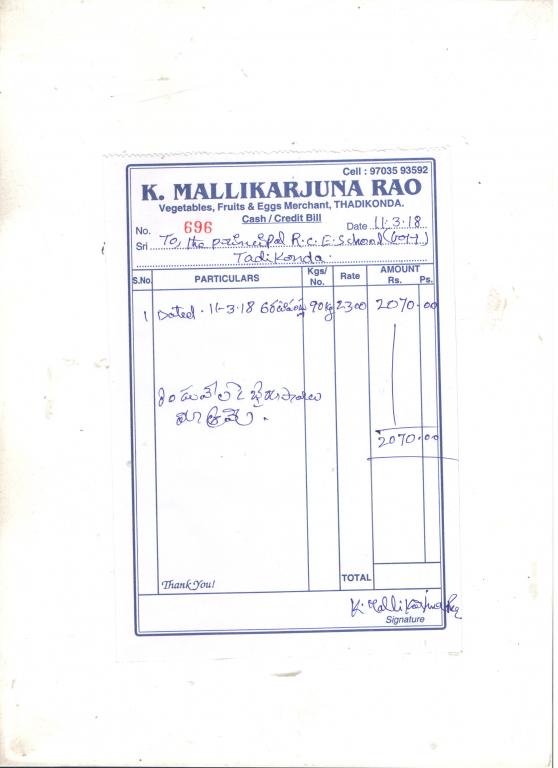 Cell : 97035 93592
K. MALLIKARJUNA RAO
Vegetables, Fruits & Eggs Merchant, THADIKONDA.
Cash / Credit Bill
No. 696 Date 11-3-18
Sri To, the principal R.C.E. School (Boys)
Tadikonda.
S.No. PARTICULARS Kgs/ No. Rate AMOUNT Rs. Ps.
1 Dated. 11-3-18 90kg 23.00 2070.00
2070.00
Thank You!
TOTAL
K. Mallikarjuna Rao
Signature